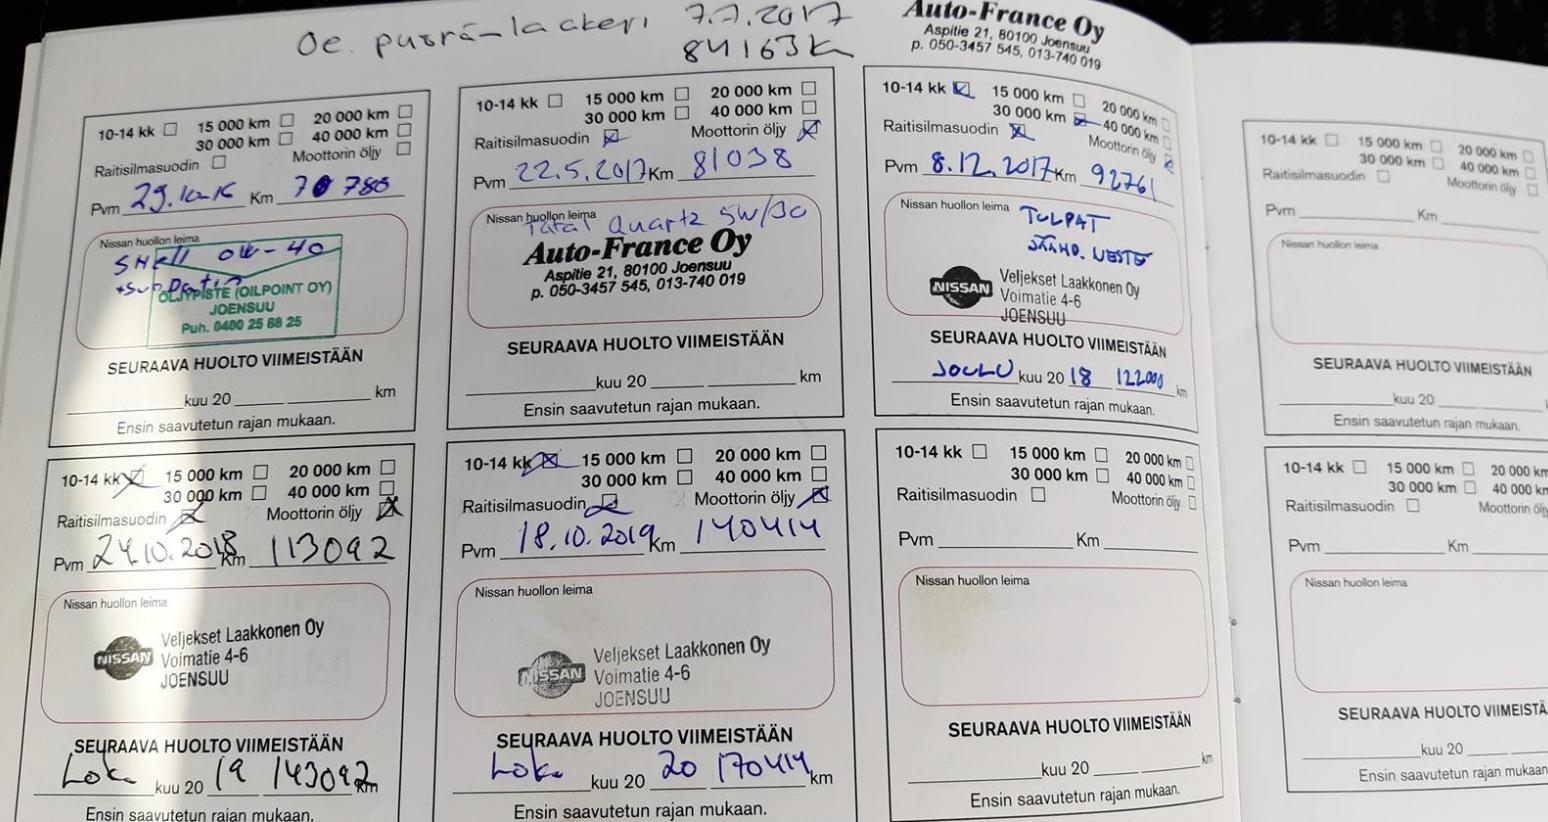 7.7.2017
84163k
Auto-France Oy
Aspitie 21, 80100 Joensuu
p. 050-3457 545, 013-740 019
10-14 kk 15 000 km 20 000 km
30 000 km 40 000 km
Raitisilmasuodin Moottorin öljy
Pvm 29.10-16 Km 70 780
Nissan huollon leima
Shell 0W-40
+suodatin
ÖLJYPISTE (OILPOINT OY)
JOENSUU
Puh. 0400 25 88 25
SEURAAVA HUOLTO VIIMEISTÄÄN
kuu 20 km
Ensin saavutetun rajan mukaan.
10-14 kk 15 000 km 20 000 km
30 000 km 40 000 km
Raitisilmasuodin Moottorin öljy
Pvm 22.5.2017 Km 81038
Nissan huollon leima
Total Quartz 5W/30
Auto-France Oy
Aspitie 21, 80100 Joensuu
p. 050-3457 545, 013-740 019
SEURAAVA HUOLTO VIIMEISTÄÄN
kuu 20 km
Ensin saavutetun rajan mukaan.
10-14 kk 15 000 km 20 000 km
30 000 km 40 000 km
Raitisilmasuodin Moottorin öljy
Pvm 8.12.2017 Km 92761
Nissan huollon leima
TULPAT
JÄÄHD. NESTE
NISSAN
Veljekset Laakkonen Oy
Voimatie 4-6
JOENSUU
SEURAAVA HUOLTO VIIMEISTÄÄN
JOULU kuu 20 18 122000 km
Ensin saavutetun rajan mukaan.
10-14 kk 15 000 km 20 000 km
30 000 km 40 000 km
Raitisilmasuodin Moottorin öljy
Pvm Km
Nissan huollon leima
SEURAAVA HUOLTO VIIMEISTÄÄN
kuu 20
Ensin saavutetun rajan mukaan.
10-14 kk 15 000 km 20 000 km
30 000 km 40 000 km
Raitisilmasuodin Moottorin öljy
Pvm 24.10.2018 Km 113092
Nissan huollon leima
NISSAN
Veljekset Laakkonen Oy
Voimatie 4-6
JOENSUU
SEURAAVA HUOLTO VIIMEISTÄÄN
Loka kuu 20 19 143092 km
Ensin saavutetun rajan mukaan.
10-14 kk 15 000 km 20 000 km
30 000 km 40 000 km
Raitisilmasuodin Moottorin öljy
Pvm 18.10.2019 Km 140414
Nissan huollon leima
NISSAN
Veljekset Laakkonen Oy
Voimatie 4-6
JOENSUU
SEURAAVA HUOLTO VIIMEISTÄÄN
Loka kuu 20 20 170414 km
Ensin saavutetun rajan mukaan.
10-14 kk 15 000 km 20 000 km
30 000 km 40 000 km
Raitisilmasuodin Moottorin öljy
Pvm Km
Nissan huollon leima
SEURAAVA HUOLTO VIIMEISTÄÄN
kuu 20 km
Ensin saavutetun rajan mukaan.
10-14 kk 15 000 km 20 000
30 000 km 40 000 km
Raitisilmasuodin Moottorin öljy
Pvm Km
Nissan huollon leima
SEURAAVA HUOLTO VIIMEISTÄ
kuu 20
Ensin saavutetun rajan mukaan